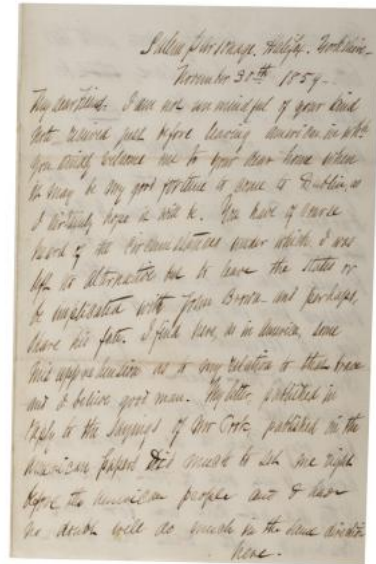 Parsonage, Halifax. Yorkshire –
November 30th 1859.
My dear friend. I am not unmindful of your kind
note received just before leaving america in wh
you welcome me to your dear home when
it may be my good fortune to come to Dublin, as
I certainly hope it will be. You have of course
heard of the circumstances under which I was
left no alternative but to leave the States or
be implicated with John Brown – and perhaps,
share his fate. I find here, as in america, some
misapprehension as to my relation to that brave
and I believe good man. My letter, published in
reply to the sayings of Mr Cook, published in the
American papers did much to set me right
before the American people and I have
no doubt will do much in the same direction
here.